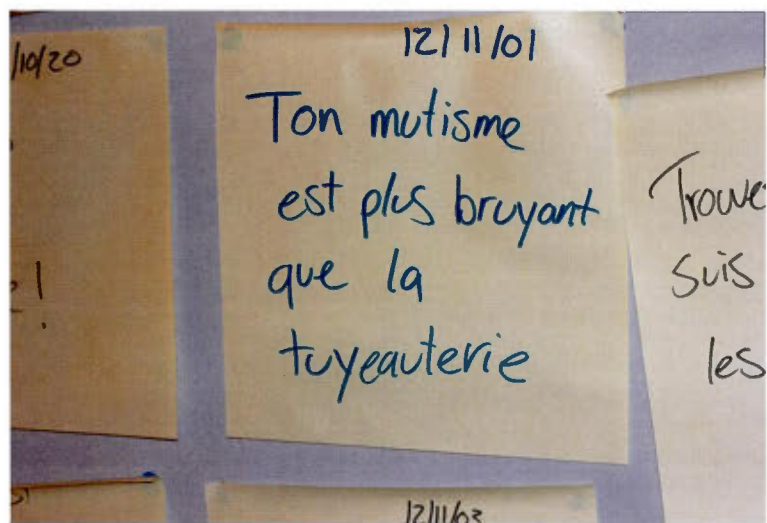 /10/20
!
12/11/01
Ton mutisme
est plus bruyant
que la
tuyeauterie
Trouve
suis
les
12/11/03